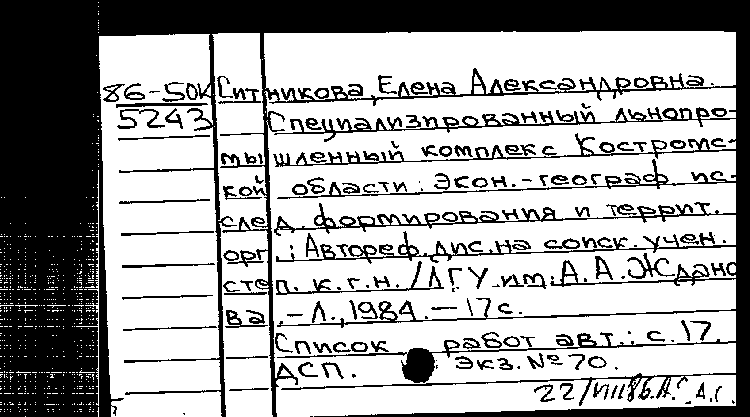 86-50к Ситникова, Елена Александровна.
5243 Специализированный льнопро-
мышленный комплекс Костромс-
кой области: Экон.-географ. ис-
след. формирования и террит.
орг.: Автореф. дис. на соиск. учен.
степ. к.г.н. /ЛГУ им. А.А. Ждано
ва. - Л., 1984. - 17 с.
Список работ авт.: с. 17.
ДСП. Экз. № 70.
22/VIII86.